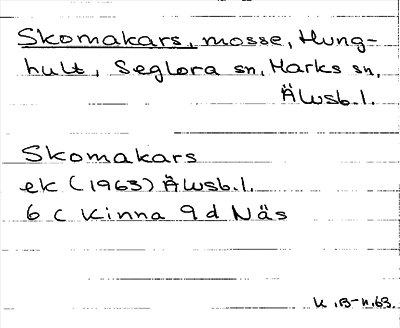 Skomakars, mosse, Hung-
hult, Seglora sn, Marks sn,
Älvsb.l.
Skomakars
ek (1963) Älvsb.l.
6 c Kinna 9 d Näs
K.B-n,63.